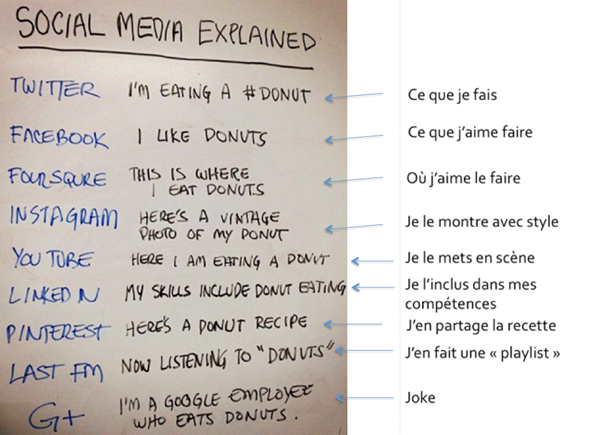 SOCIAL MEDIA EXPLAINED
TWITTER I'M EATING A #DONUT Ce que je fais
FACEBOOK I LIKE DONUTS Ce que j'aime faire
FOURSQURE THIS IS WHERE
I EAT DONUTS Où j'aime le faire
INSTAGRAM HERE'S A VINTAGE
PHOTO OF MY DONUT Je le montre avec style
YOU TUBE HERE I AM EATING A DONUT Je le mets en scène
LINKED IN MY SKILLS INCLUDE DONUT EATING Je l'inclus dans mes
compétences
PINTEREST HERE'S A DONUT RECIPE J'en partage la recette
LAST FM NOW LISTENING TO "DONUTS" J'en fait une « playlist »
G+ I'M A GOOGLE EMPLOYEE
WHO EATS DONUTS. Joke